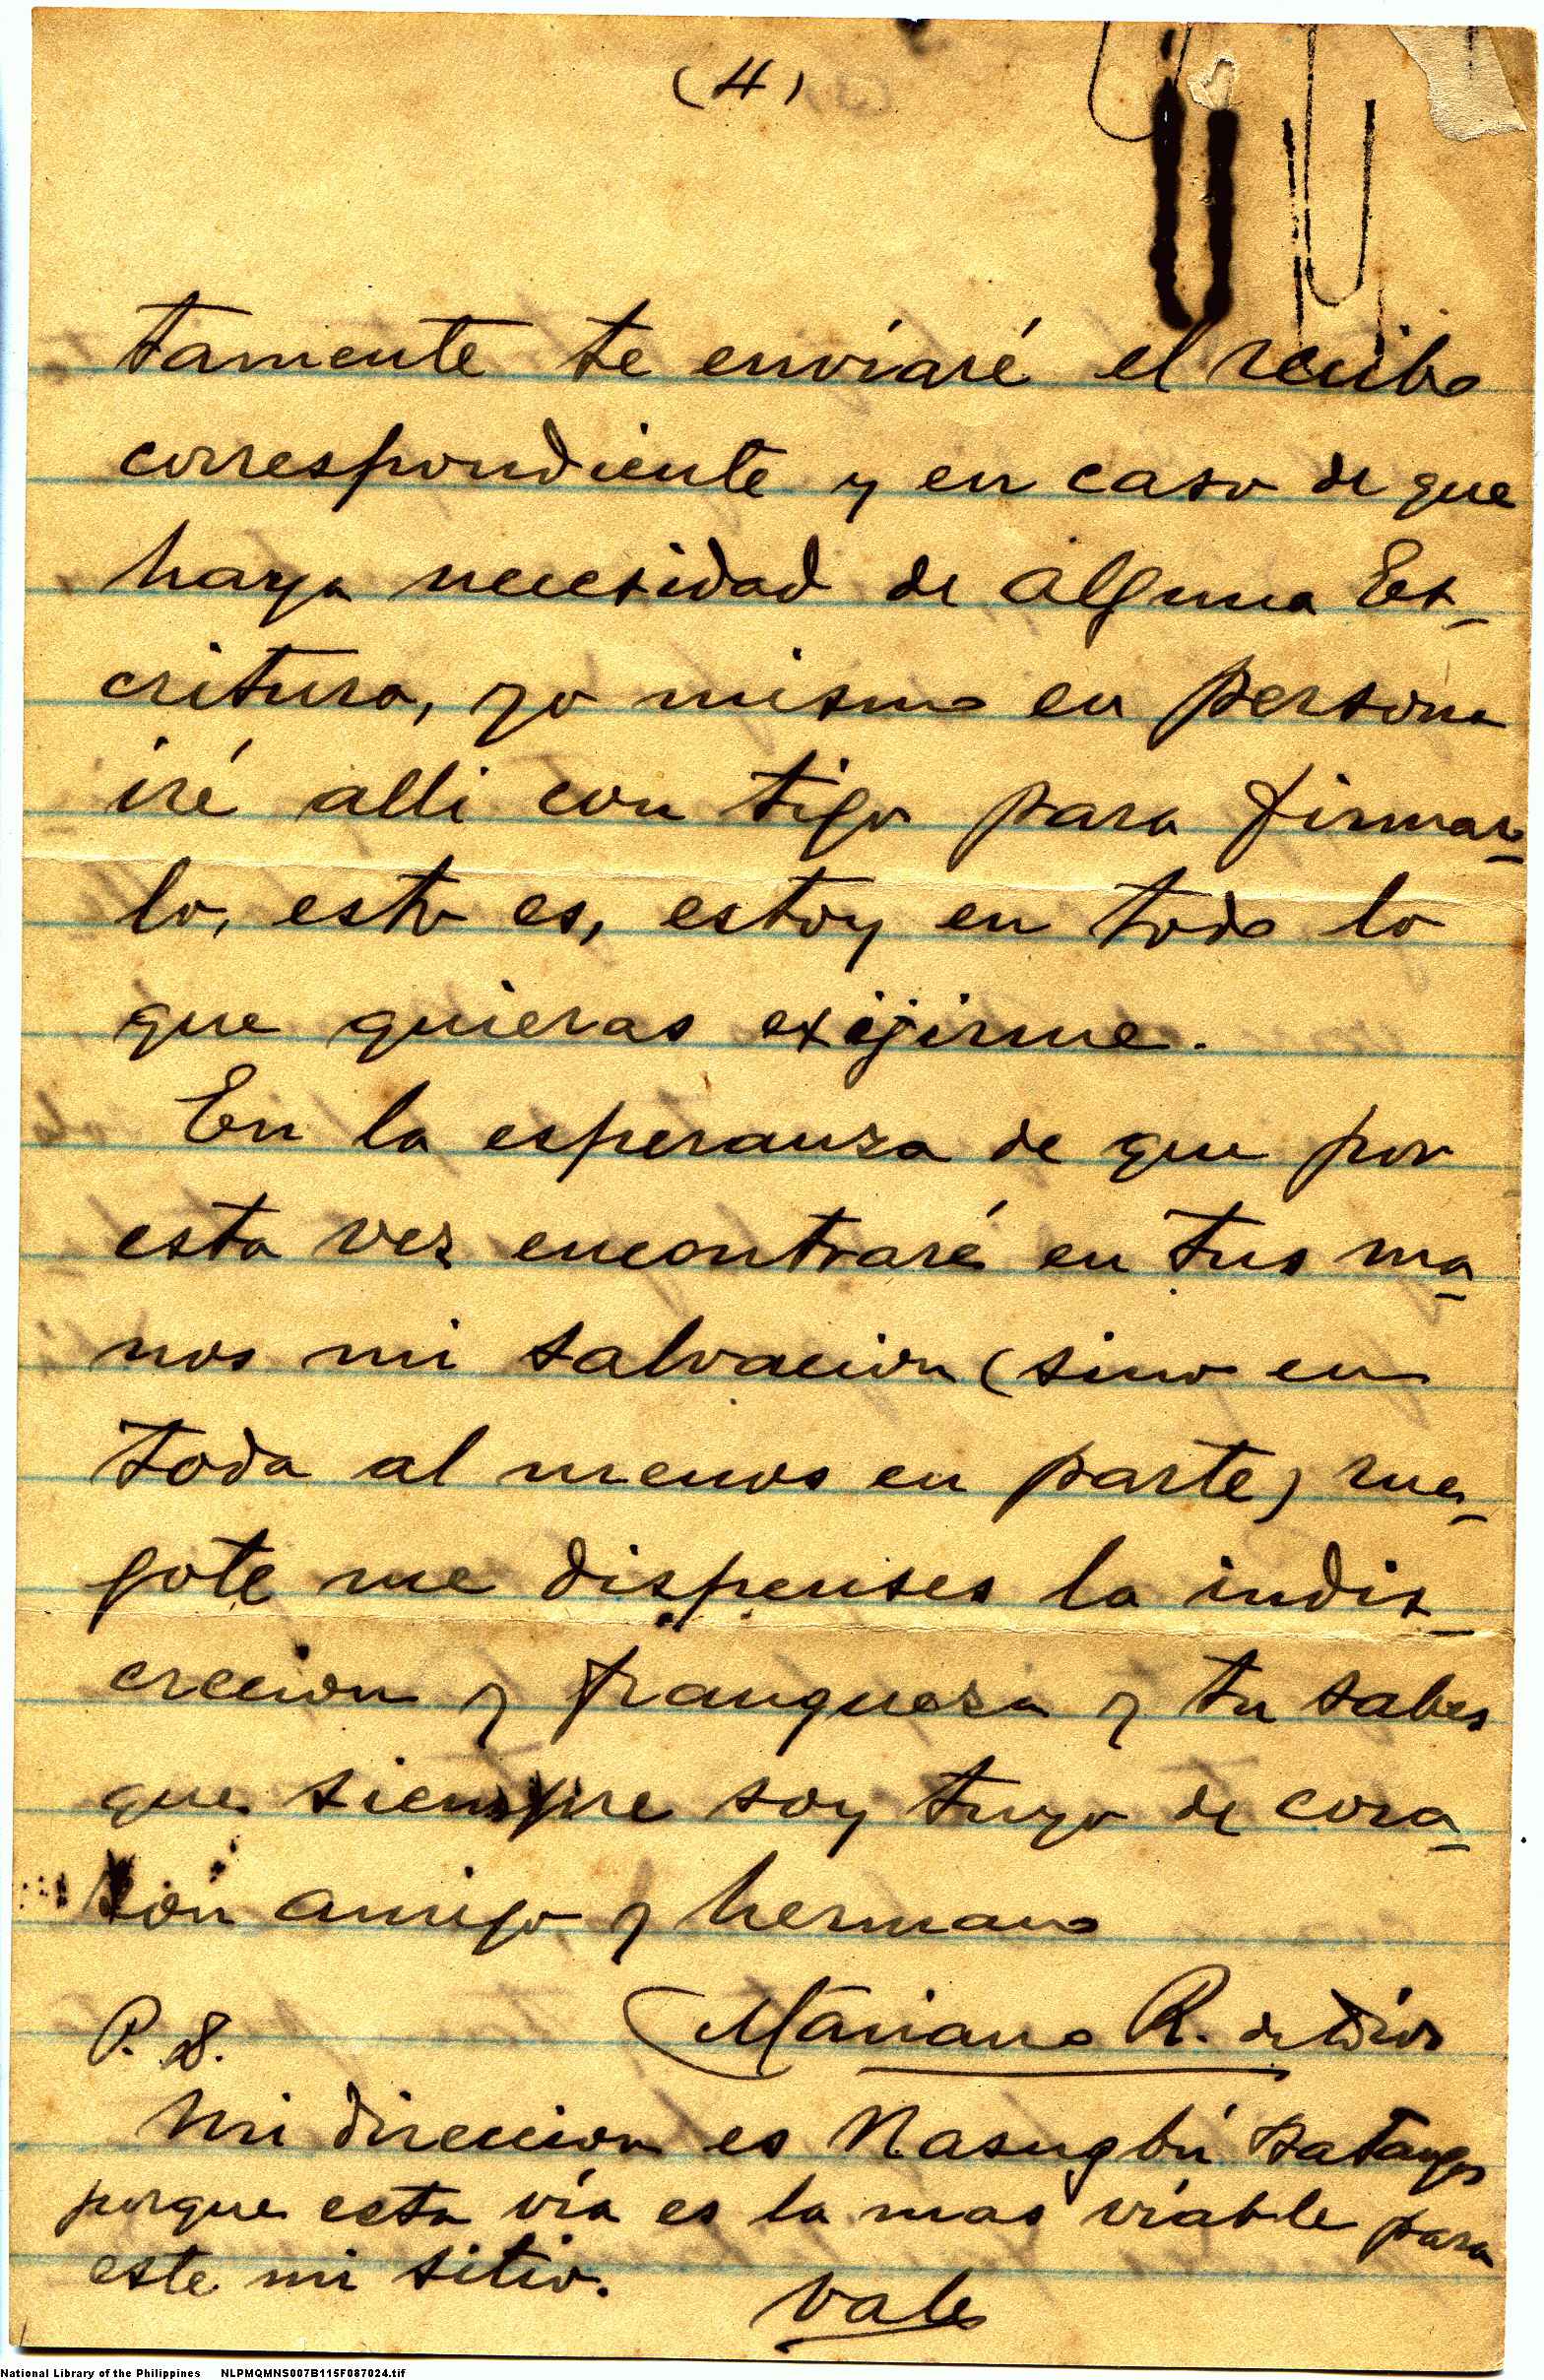 (4)
tamente te enviaré el recibo
correspondiente y en caso de que
haya necesidad de alguna Es-
critura, yo mismo en persona
iré alli con tigo para firmar-
lo, esto es, estoy en todo lo
que quieras exijirme.
En la esperanza de que por
esta vez encontraré en tus ma-
nos mi salvacion (sino en
toda al menos en parte) rue-
gote me dispenses la indis-
crecion y franqueza y tu sabes
que siempre soy tuyo de cora-
zon amigo y hermano
Mariano R. de Dios
P. S.
Mi direccion es Nasugbú Batangas
porque esta vía es la mas viable para
este mi sitio.
Vale
National Library of the Philippines NLPMQMNS007B115F087024.tif